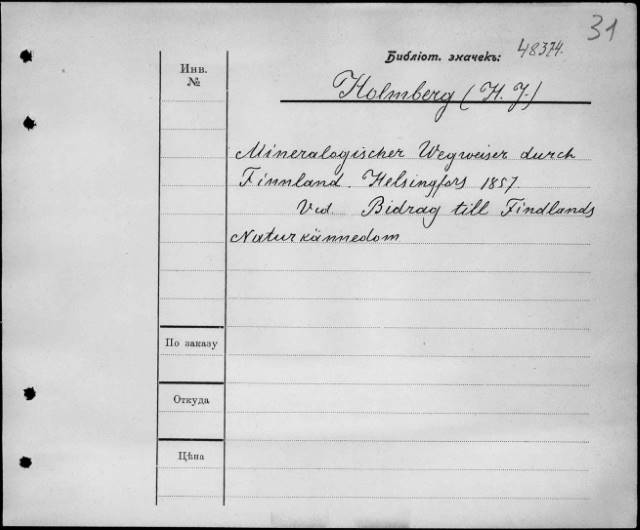 31
Библіот. значекъ: 48374.
Инв.
№
Holmberg (H. J.)
Mineralogischer Wegweiser durch
Finnland. Helsingfors 1857.
Vid. Bidrag till Findlands
Naturkännedom
По заказу
Откуда
Цѣна